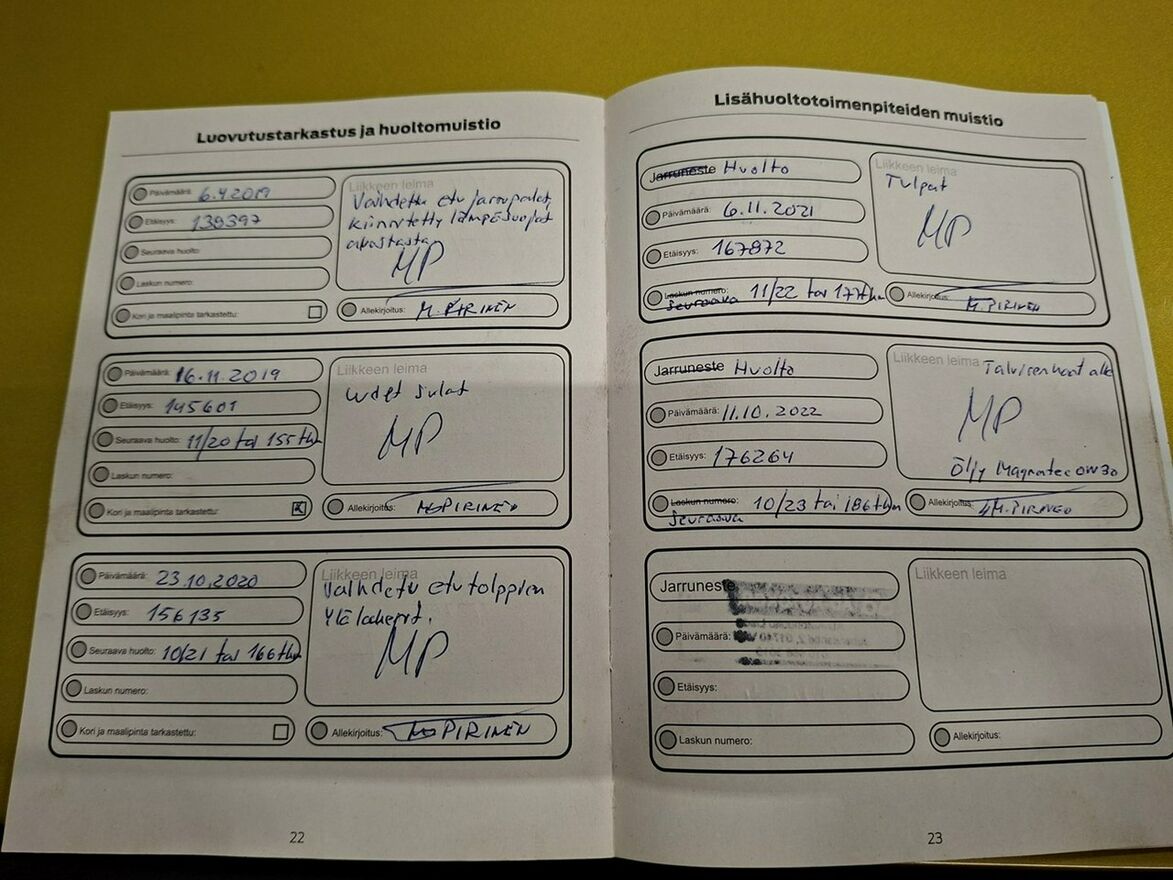 Luovutustarkastus ja huoltomuistio
Päivämäärä: 6.4.2019
Etäisyys: 138397
Seuraava huolto:
Laskun numero:
Kori ja maalipinta tarkastettu:
Liikkeen leima
Vaihdettu etu jarrupalat,
kiinnitetty lämpösuojat
alustasta
MP
Allekirjoitus: M. PIRINEN
Päivämäärä: 16.11.2019
Etäisyys: 145601
Seuraava huolto: 11/20 tai 155tkm
Laskun numero:
Kori ja maalipinta tarkastettu:
Liikkeen leima
uudet sulat
MP
Allekirjoitus: M. PIRINEN
Päivämäärä: 23.10.2020
Etäisyys: 156135
Seuraava huolto: 10/21 tai 166tkm
Laskun numero:
Kori ja maalipinta tarkastettu:
Liikkeen leima
Vaihdettu etutolppien
ylälaakerit.
MP
Allekirjoitus: PIRINEN
22
Lisähuoltotoimenpiteiden muistio
Jarruneste Huolto
Päivämäärä: 6.11.2021
Etäisyys: 167872
Laskun numero: 11/22 tai 177tkm
Seuraava
Liikkeen leima
Tulpat
MP
Allekirjoitus: M. PIRINEN
Jarruneste Huolto
Päivämäärä: 11.10.2022
Etäisyys: 176264
Laskun numero: 10/23 tai 186tkm
Seuraava
Liikkeen leima Talvirenkaat alle
MP
Öljy Magnatec 0W30
Allekirjoitus: M. PIRINEN
Jarruneste
Päivämäärä:
Etäisyys:
Laskun numero:
Liikkeen leima
Allekirjoitus:
23